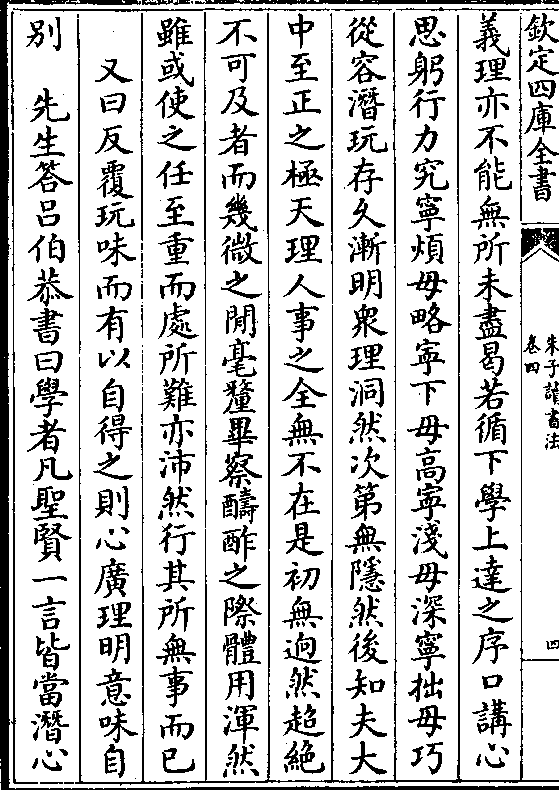 欽定四庫全書
朱子讀書法
卷四
四
義理亦不能無所未盡曷若循下學上達之序口講心
思躬行力究寧煩毋略寧下毋高寧淺毋深寧拙毋巧
從容潛玩存久漸明衆理洞然次第無隱然後知夫大
中至正之極天理人事之全無不在是初無逈然超絶
不可及者而幾微之間毫釐畢察酬酢之際體用渾然
雖或使之任至重而處所難亦沛然行其所無事而已
又曰反覆玩味而有以自得之則心廣理明意味自
别　先生答吕伯恭書曰學者凡聖賢一言皆當潛心